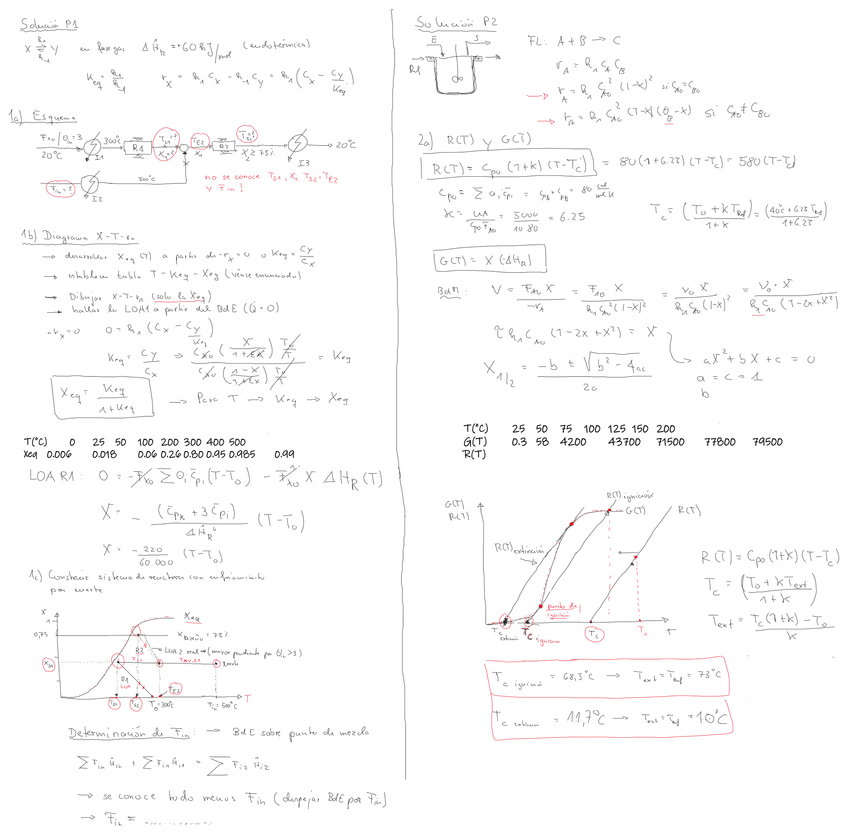 Solución P1
X ⇌ Y en fase gas ΔH_R = +60 kJ/mol (endotérmica)
k1
k-1
Keq = k1/k-1 r_X = k1 C_X - k-1 C_Y = k1 (C_X - C_Y/Keq)
1a) Esquema
F_X0 / θ_in = 3
20°C
I1
300°C
R1
T_S1 = ?
X_1 = ?
T_E2
X_1
R2
T_S2 = ?
X_2 ≥ 75%
I3
20°C
F_in = ?
I2
500°C
no se conoce T_S1, X_1, T_S2, T_E2
y F_in !
1b) Diagrama X-T-r_0
→ desarrollar X_eq (T) a partir de -r_X = 0 o Keq = C_Y/C_X
→ establecer tabla T - Keq - Xeq (véase enunciado)
→ Dibujar X-T-r_A (solo la Xeq)
→ hallar la LOA1 a partir del BdE (Q̇ = 0)
-r_X = 0 0 = k1 (C_X - C_Y/Keq)
Keq = C_Y/C_X ⇒ C_X0 (X/(1+εX)) T_0/T / C_X0 ((1-X)/(1+εX)) T_0/T = Keq
Xeq = Keq/(1+Keq) → Para T → Keq → Xeq
T(°C) 0 25 50 100 200 300 400 500
Xeq 0.006 0.018 0.06 0.26 0.80 0.95 0.985 0.99
LOA R1: 0 = -F_X0 Σ θ_i C̄_pi (T-T_0) - F_X0 X ΔH_R (T)
X = - (C̄_pX + 3 C̄_pi)/ΔH_R° (T-T_0)
X = - 220/60.000 (T-T_0)
1c) Construir sistema de reactores con enfriamiento
por mezcla
X
1
0,75
X_S1
Xeq
X = 75%
R2
LOA2 real → (menor pendiente por θ_in > 3)
R1
LOA
T_E2
T_S1
T_S2
T_0 = 300°C
T_in = 500°C
T
Determinación de F_in: → BdE sobre punto de mezcla
Σ F_in H_in + Σ F_i1 H_i1 = Σ F_i2 H_i2
→ se conoce todo menos F_in (despejas BdE por F_in)
→ F_in = ............
Solución P2
E
S
FL: A + B → C
r_A = k1 C_A C_B
→ r_A = k1 C_A0² (1-X)² si C_A0 = C_B0
→ r_A = k1 C_A0² (1-X)(θ_B - X) si C_A0 ≠ C_B0
2a) R(T) y G(T)
R(T) = C_p0 (1+K) (T-T_c) = 80 (1+6.25) (T-T_c) = 580 (T-T_c)
C_p0 = Σ θ_i C̄_pi = C_pA + C_pB = 80 cal/mol K
K = UA/(C_p0 F_A0) = 5000/10 80 = 6.25
T_c = (T_0 + K T_Ref)/(1+K) = (40°C + 6.25 T_Ref)/(1+6.25)
G(T) = X (ΔH_R)
BdM: V = F_A0 X/-r_A = F_A0 X/(k1 C_A0² (1-X)²) = v_0 X/(k1 C_A0 (1-X)²) = v_0 · X/(k1 C_A0 (1-2X+X²))
τ k1 C_A0 (1-2X+X²) = X
X_1/2 = (-b ± √(b² - 4ac))/2a
aX² + bX + c = 0
a = c = 1
b
T(°C) 25 50 75 100 125 150 200
G(T) 0.3 58 4200 43700 71500 77800 79500
R(T)
G(T)
R(T)
R(T) ignición
G(T)
R(T) extinción
R(T)
punto de
ignición
T_c extinción
T_c ignición
T_c
T
R(T) = C_p0 (1+K) (T-T_c)
T_c = (T_0 + K T_ext)/(1+K)
T_ext = (T_c (1+K) - T_0)/K
T_c ignición = 68,3°C → T_ext = T_Ref = 73°C
T_c extinción = 11,7°C → T_ext = T_Ref = 10°C